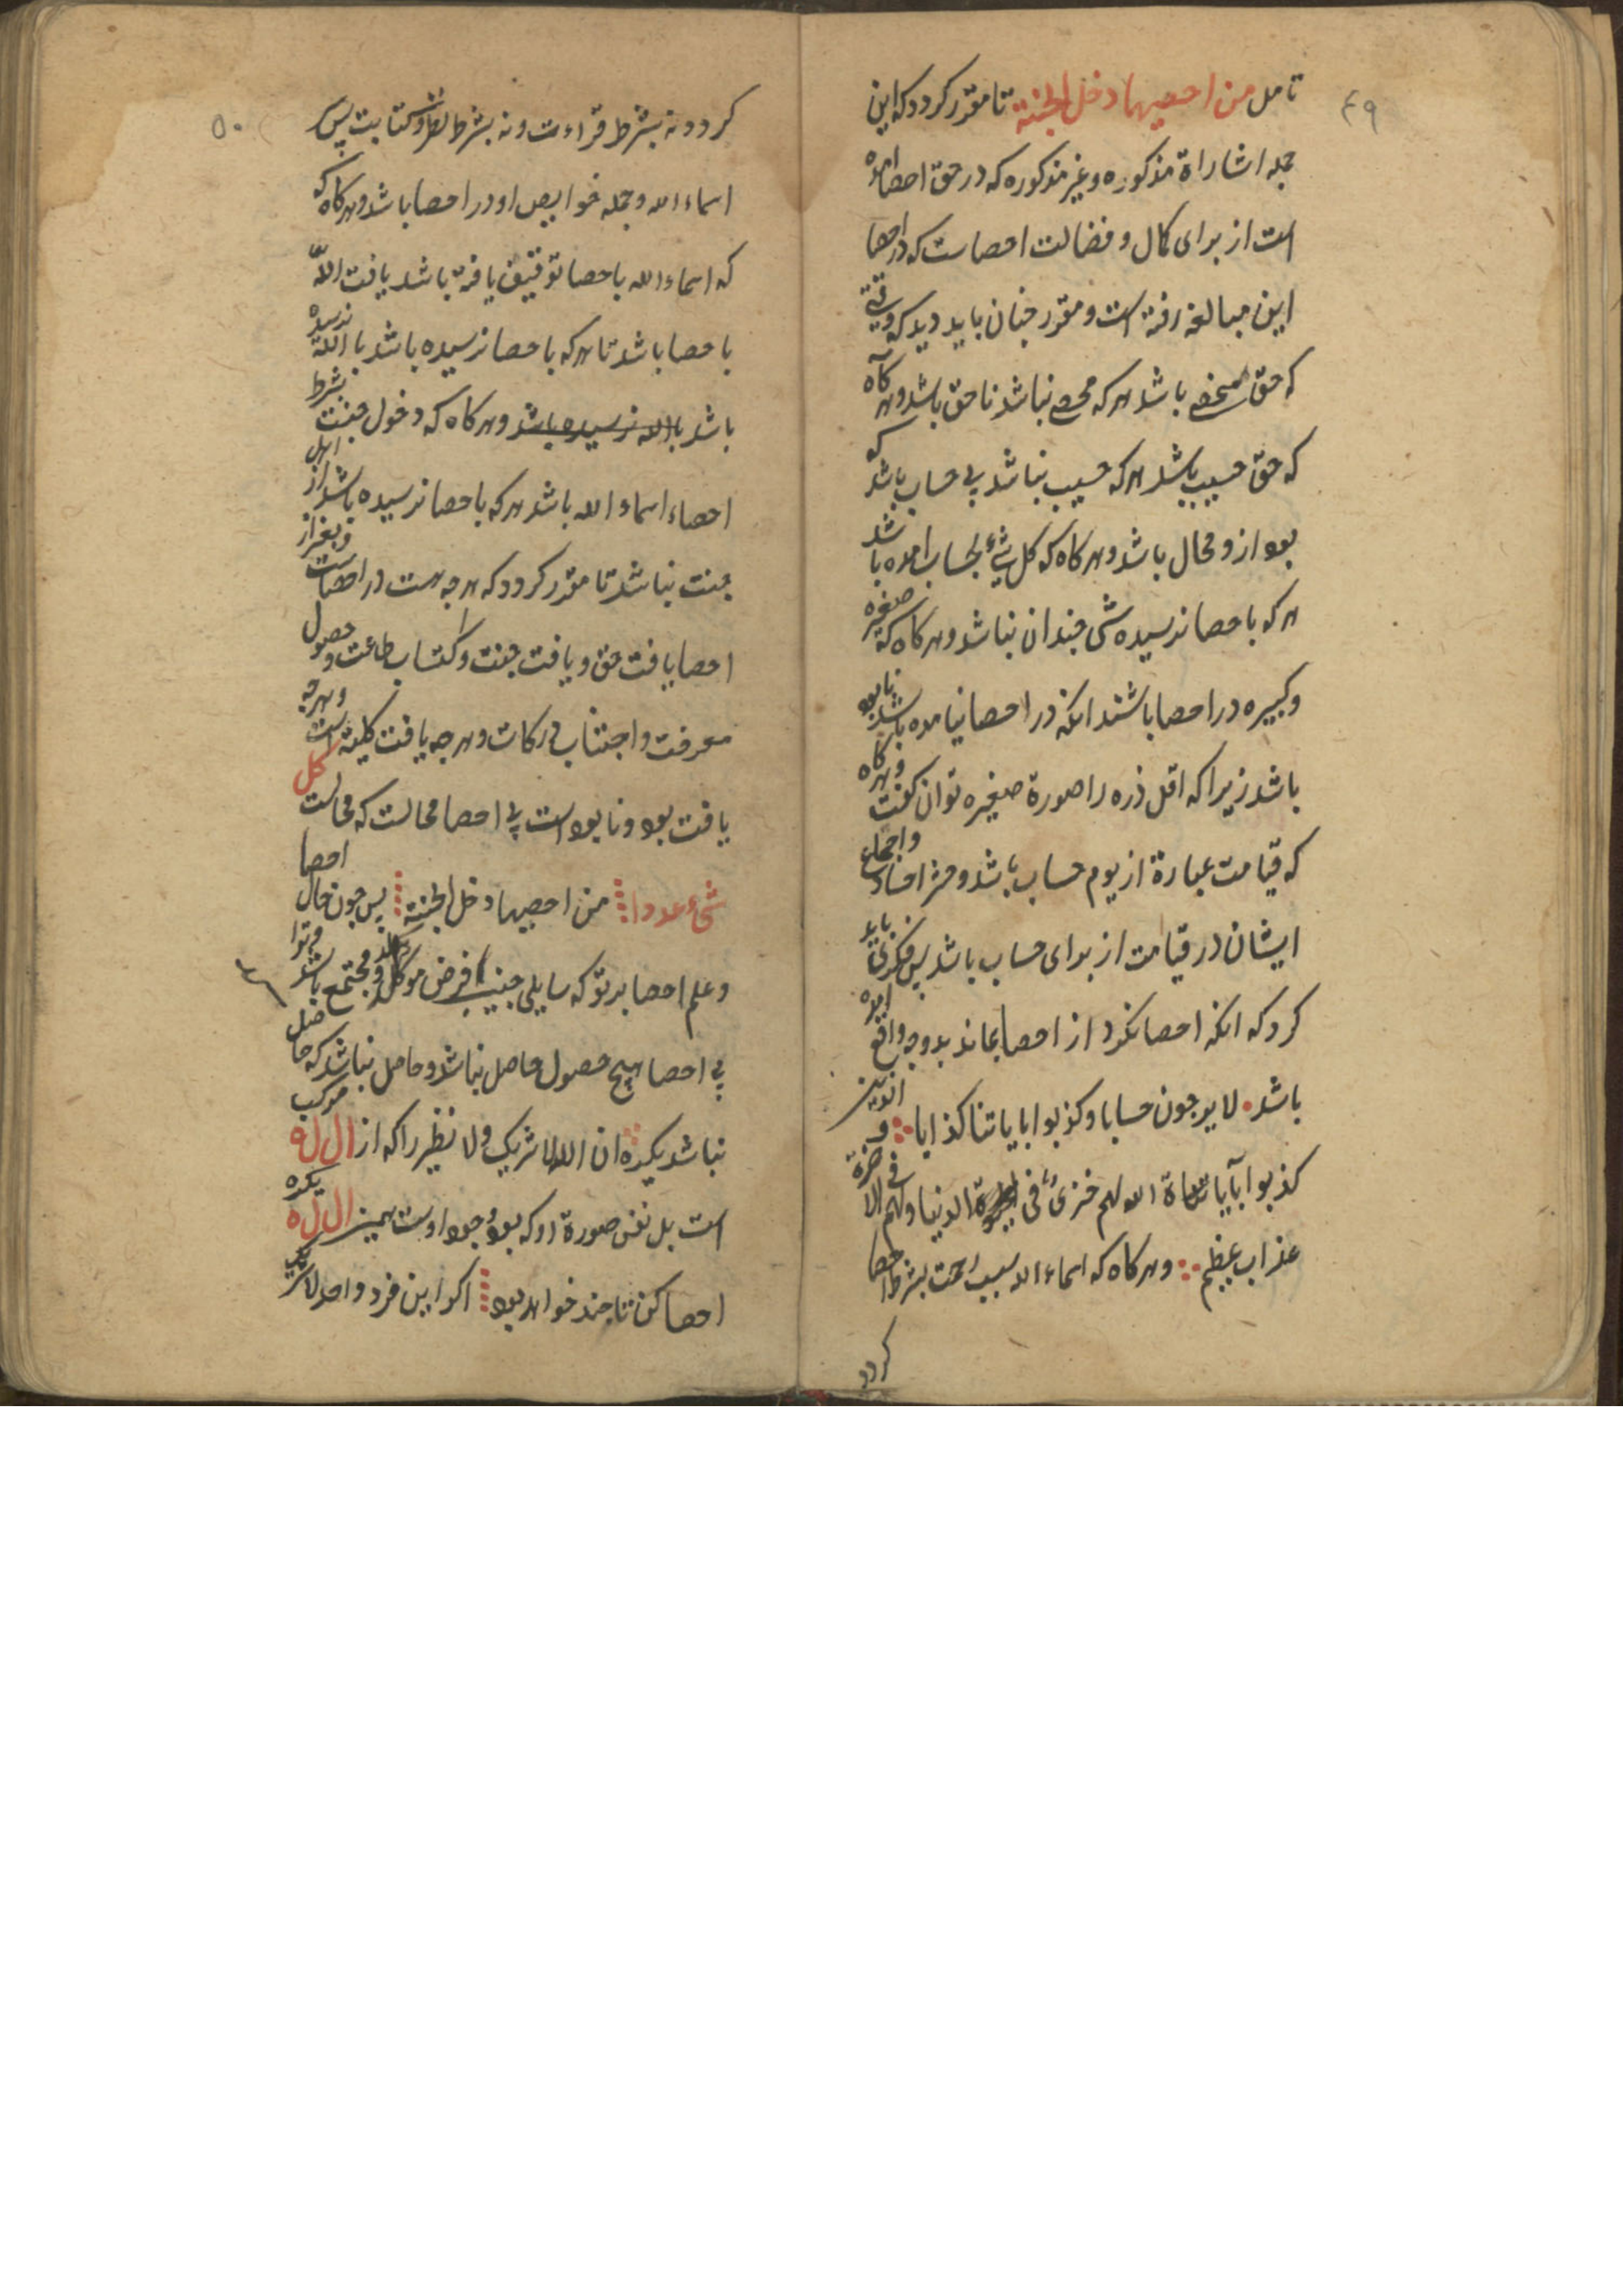 ۴۹
تامل من احصیها دخل الجنة تا مقرر کردد که این
جمله اشاراة مذکوره و غیر مذکوره که در حق احصا
است از برای کمال و فضالت احصاست که در احصا
این مبالغه رفته است و مقرر جنان باید دید که وقتی
که حق محصی باشد هر که محصی نباشد ناحق باشد و هرکاه
که حق حسیب باشد هر که حسیب نباشد بی حساب باشد که
بود ازو محال باشد و هرکاه که کل شیء بحساب امده باشد
هر که باحصا نرسیده شی جندان نباشد و هرکاه که صغیره
و کبیره در احصا باشند انکه در احصا نیامده باشد نابود
باشد زیرا که اقل ذره را صورة صغیره توان کفت و هرکاه
که قیامت عبارة از یوم حساب باشد و حشر اجساد و اجماع
ایشان در قیامت از برای حساب باشد پس فکری باید
کرد که انکه احصا نکرد از احصا بماند بدو چه واقع
باشد لا یرجون حسابا و کذبوا بایاتنا کذابا و الذین
کذبوا بآیات الله لهم خزی فی الحیوة الدنیا و لهم فی الاخرة
عذاب عظیم و هرکاه که اسماء الله سبب جنت بشرط احصا
کردد
۵۰
کردد نه بشرط قراءت و نه بشرط نظر و کتابت پس
اسماء الله و جمله خواص او در احصا باشد و هرکاه که
که اسماء الله باحصا توقیف یافته باشد یافت الله
باحصا باشد تا هر که باحصا نرسیده باشد با الله نرسیده
باشد با الله نرسیده باشد و هرکاه که دخول جنت بشرط
احصاء اسماء الله باشد هر که باحصا نرسیده باشد از اهل
جنت نباشد تا مقرر کردد که هر چه هست در احصاست و بغیر از
احصا یافت حق و یافت جنت و اکتساب طاعت و حصول
معرفت و اجتناب درکات و هر چه یافت کلیة است و هر چه
یافت بود و نابود است بی احصا محالست که محالست کل
شیء عددا من احصیها دخل الجنة پس چون حال احصا
و علم احصا بر تو که سایلی جنین فرض موکل و مجتمع باشد
بی احصا هیج حصول حاصل نباشد و حاصل نباشد که حاصل
نباشد یکره ان الله لا شریک و لا نظیر را که از ا ل ل ه مرکب
است بل نفس صورة او که بود وجود اوست همین ا ل ل ه یکره
احصا کن تا جند خواهد بود اکر این فرد واحد لا شریک